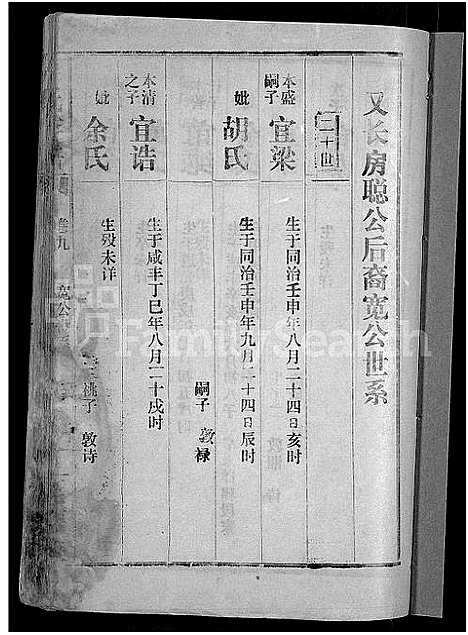 又长房聪公后裔宽公世系
二十世
本盛嗣子 宜梁 生于同治壬申年八月二十四日亥时
妣 胡氏 生于同治壬申年九月二十四日辰时
嗣子 敦禄
本清之子 宜诰 生于咸丰丁巳年八月二十戌时
妣 余氏 生殁未详
祧子 敦诗
卷九
宽公
FamilySearch